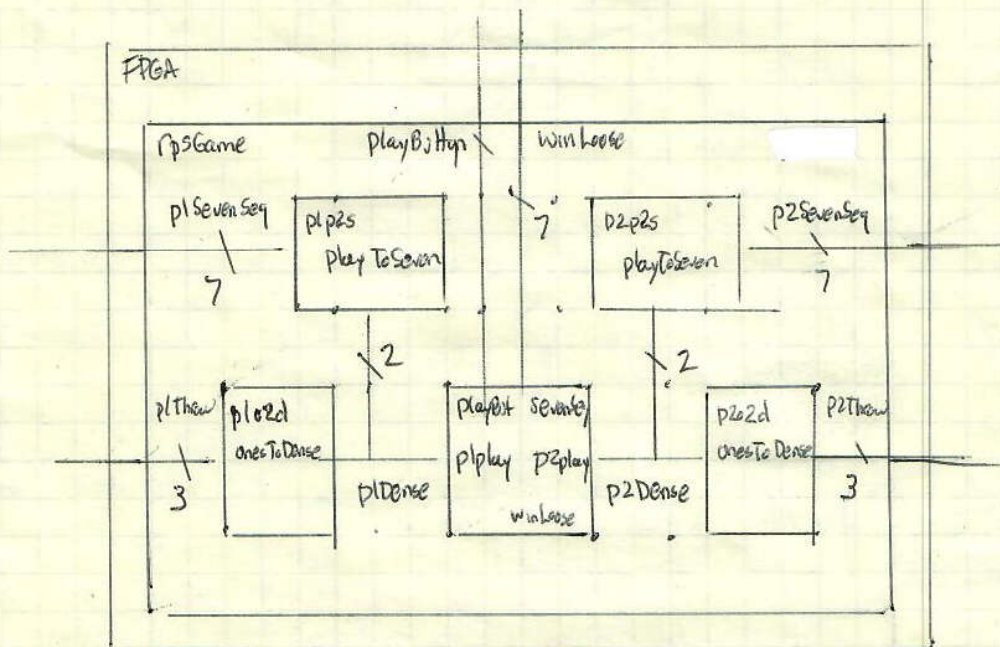 FPGA
rpsGame
playButton
winLoose
p1SevenSeg
7
p1p2s
playToSeven
7
p2p2s
playToSeven
p2SevenSeg
7
2
2
p1Throw
3
p1o2d
onesToDense
p1Dense
playBut sevenSeg
p1play p2play
winLoose
p2Dense
p2o2d
onesToDense
p2Throw
3